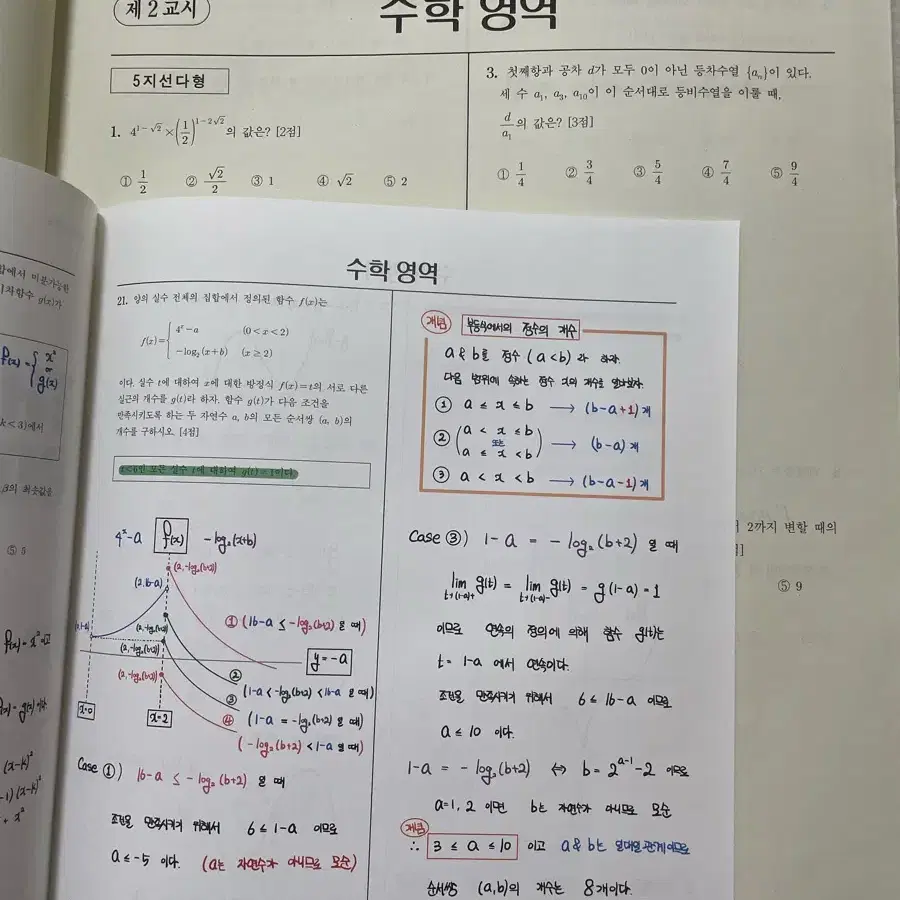 제 2 교시
수학 영역
5지선다형
1. 4^{1-√2}×(1/2)^{1-2√2}의 값은? [2점]
① 1/2 ② √2/2 ③ 1 ④ √2 ⑤ 2
3. 첫째항과 공차 d가 모두 0이 아닌 등차수열 {aₙ}이 있다.
세 수 a₁, a₃, a₁₀이 이 순서대로 등비수열을 이룰 때,
d/a₁의 값은? [3점]
① 1/4 ② 3/4 ③ 5/4 ④ 7/4 ⑤ 9/4
2까지 변할 때의
⑤ 9
에서 미분가능한
차함수 g(x)가
f(x)={ x²
or
g(x)
k<3)에서
의 최솟값을
⑤ 5
f(x)=x² 이고
(x-k)²
-1)(x-k)²
+ x²
수학 영역
21. 양의 실수 전체의 집합에서 정의된 함수 f(x)는
f(x)={ 4ˣ-a (0<x<2)
-log₂(x+b) (x≥2)
이다. 실수 t에 대하여 x에 대한 방정식 f(x)=t의 서로 다른
실근의 개수를 g(t)라 하자. 함수 g(t)가 다음 조건을
만족시키도록 하는 두 자연수 a, b의 모든 순서쌍 (a, b)의
개수를 구하시오. [4점]
t<6인 모든 실수 t에 대하여 g(t)=1이다.
4ˣ-a f(x) -log₂(x+b)
(2,-log₂(b+2))
(2,16-a)
(2,-log₂(b+2))
(2,-log₂(b+2))
(2,-log₂(b+2))
① (16-a ≤ -log₂(b+2) 일 때)
y=-a
②
(1-a < -log₂(b+2) < 16-a 일 때)
③
(1-a = -log₂(b+2) 일 때)
④
(-log₂(b+2) < 1-a 일 때)
x=0
x=2
Case ①) 16-a ≤ -log₂(b+2) 일 때
조건을 만족시키기 위해서 6 ≤ 1-a 이므로
a ≤ -5 이다. (a는 자연수가 아니므로 모순)
개념 부등식에서의 정수의 개수
a & b를 정수 (a<b) 라 하자.
다음 범위에 속하는 정수 x의 개수를 알아보자.
① a ≤ x ≤ b → (b-a+1)개
② (a < x ≤ b
또는
a ≤ x < b) → (b-a)개
③ a < x < b → (b-a-1)개
Case ③) 1-a = -log₂(b+2) 일 때
lim t→(1-a)+ g(t) = lim t→(1-a)- g(t) = g(1-a) = 1
이므로 연속의 정의에 의해 함수 g(t)는
t = 1-a 에서 연속이다.
조건을 만족시키기 위해서 6 ≤ 16-a 이므로
a ≤ 10 이다.
1-a = -log₂(b+2) ⇔ b = 2^{a-1}-2 이므로
a=1, 2 이면 b는 자연수가 아니므로 모순
개념
∴ 3 ≤ a ≤ 10 이고 a & b는 일대일 관계이므로
순서쌍 (a,b)의 개수는 8개이다.